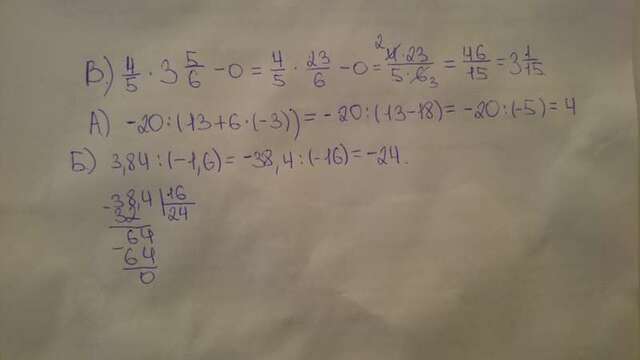 В) 4/5 · 3 5/6 - 0 = 4/5 · 23/6 - 0 = ²4·23/5·6₃ = 46/15 = 3 1/15
А) -20:(13+6·(-3)) = -20:(13-18) = -20:(-5) = 4
Б) 3,84:(-1,6) = -38,4:(-16) = -24.
-38,4 | 16
32 | 24
64
-64
0